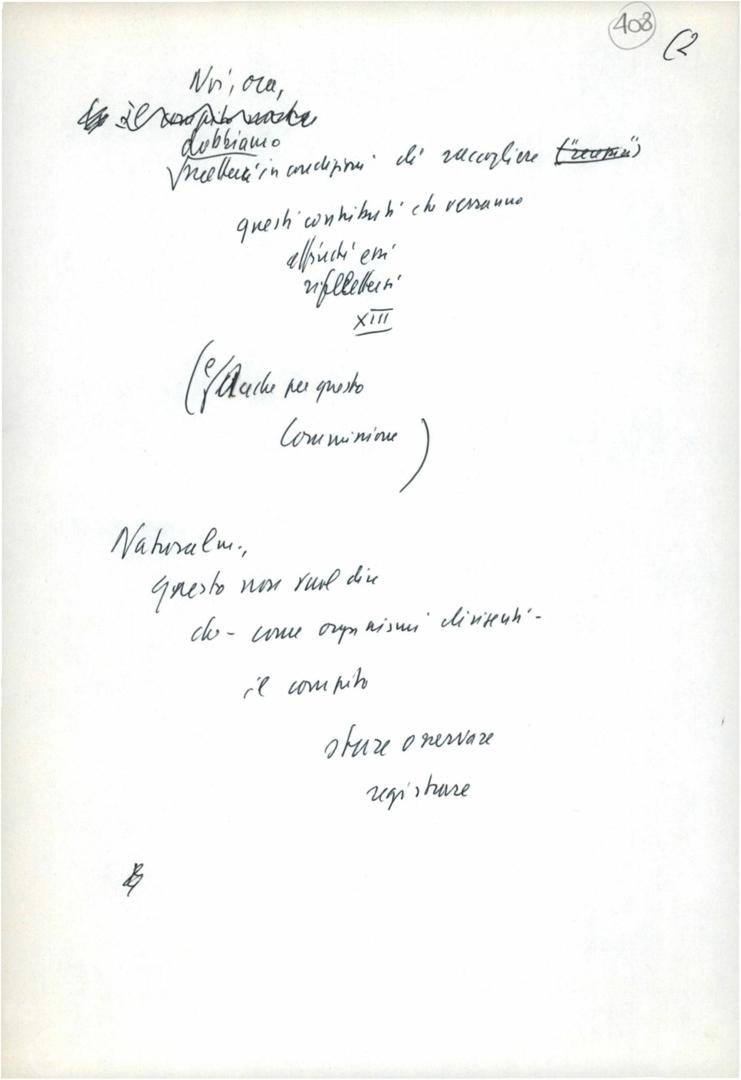 408
(2
Noi, ora,
il compito nostro
dobbiamo
metterci in condizioni di raccogliere
questi contributi che verranno
affinché essi
riflettersi
XIII
(e/Anche per questo
Commissione)
Naturalm.,
questo non vuol dire
che - come organismi dirigenti -
il compito
stare osservare
registrare